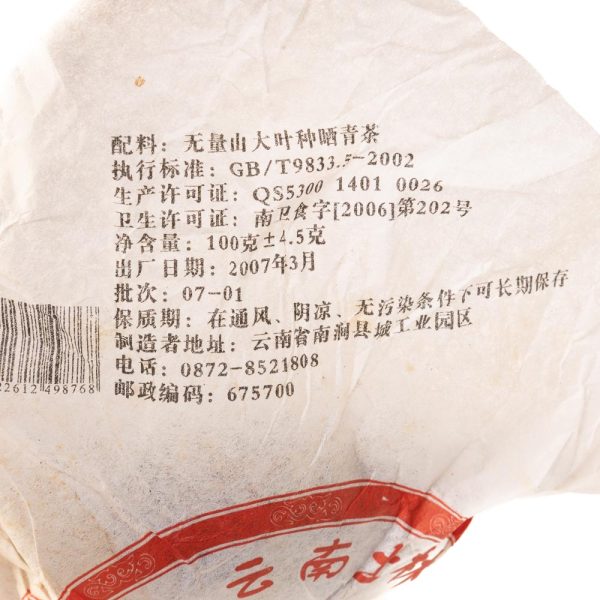 配料：无量山大叶种晒青茶
执行标准：GB/T9833.5-2002
生产许可证：QS5300 1401 0026
卫生许可证：南卫食字[2006]第202号
净含量：100克±4.5克
出厂日期：2007年3月
批次：07-01
保质期：在通风、阴凉、无污染条件下可长期保存
制造者地址：云南省南涧县城工业园区
电话：0872-8521808
邮政编码：675700
22612 498768
云南